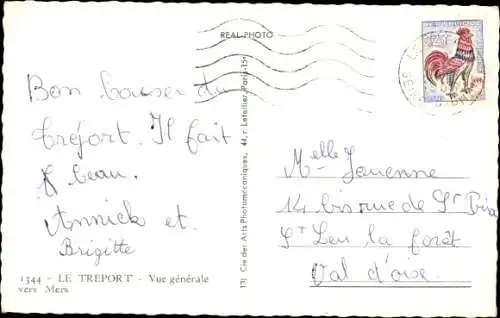 REAL-PHOTO
Bon baiser du
Tréport. Il fait
beau.
Annick et
Brigitte
1344 - LE TRÉPORT - Vue générale
vers Mers
131 Cie des Arts Photomécaniques, 44, r. Letellier, Paris-15e
Melle Jouenne
14 bis rue de St Prix
St Leu la forêt
Val d'oise.